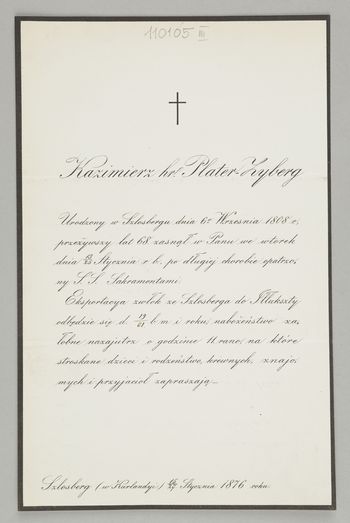 110105 III
Kazimierz hr. Plater-Zyberg
Urodzony w Szlosbergu dnia 6go Września 1808 r,
przeżywszy lat 68, zasnął w Panu we wtorek
dnia Stycznia r. b., po długiej chorobie opatrzo,
ny S. S. Sakramentami.
Eksportacya zwłok ze Szlosberga do Iłłukszty
odbędzie się d. 19/31 b. m. i roku, nabożeństwo ża,
łobne nazajutrz o godzinie 11. rano, na które
stroskane dzieci i rodzeństwo, krewnych, znajo,
mych i przyjaciół zapraszają.
Szlosberg (w Kurlandyi) Stycznia 1876 roku.